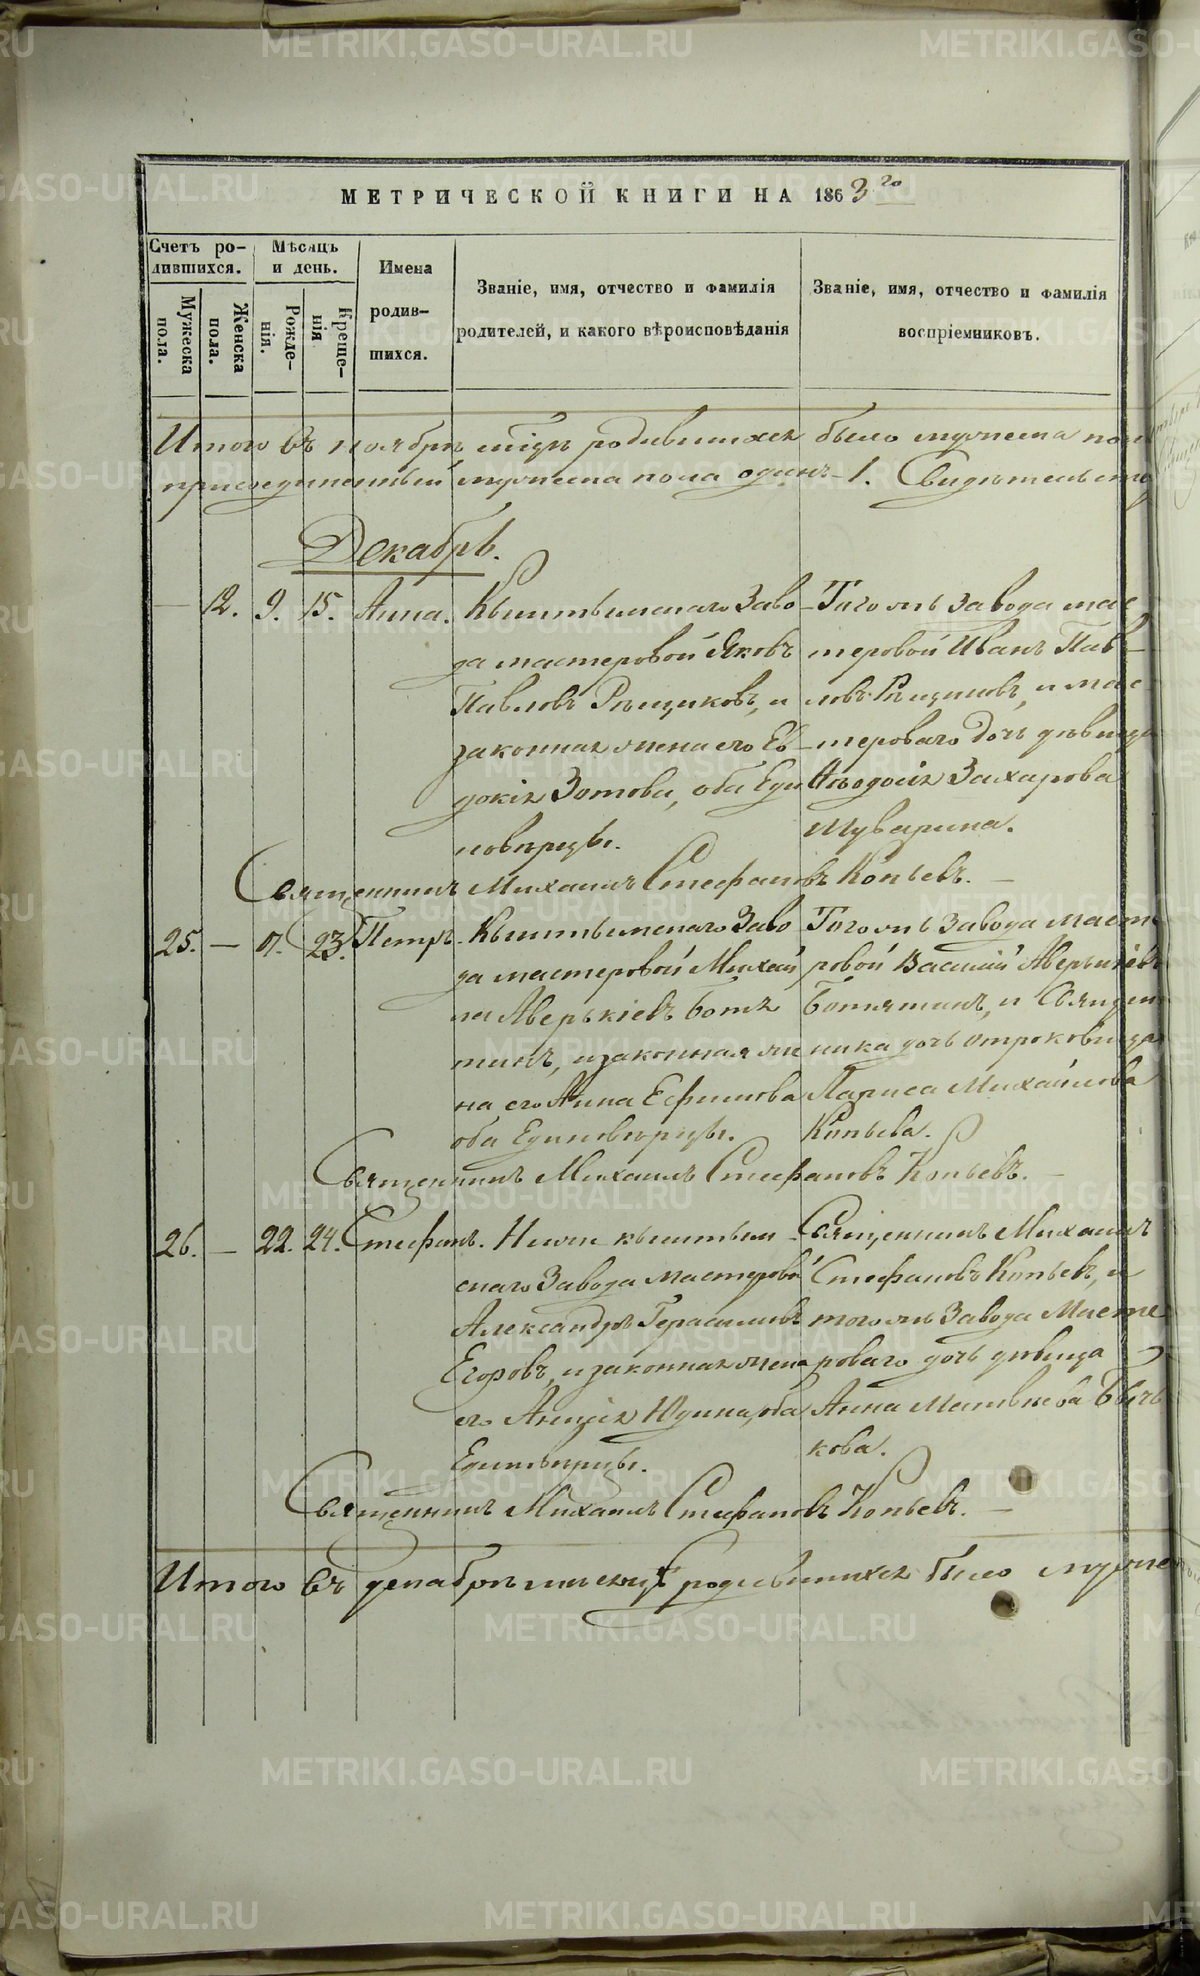 МЕТРИЧЕСКОЙ КНИГИ НА 1863 го
Счетъ ро-
дившихся.
Мѣсяцъ
и день.
Мужеска
пола.
Женска
пола.
Рожде-
нія.
Креще-
нія
Имена
родив-
шихся.
Званіе, имя, отчество и фамилія
родителей, и какого вѣроисповѣданія
Званіе, имя, отчество и фамилія
воспріемниковъ.
Итого въ ноябрѣ родившихся было мужеска пол
присоединенный мужеска пола одинъ – 1. Свидѣтельству
Декабрь.
— 12. 9. 15. Анна. Кыштымскаго Заво
да мастеровой Яковъ
Павловъ Рѣщиковъ, и
законная жена его Ев
докія Зотова, оба Еди
новѣрцы.
Того жъ завода мас
теровой Иванъ Пав
ловъ Рѣщиковъ, и мас
тероваго дочь дѣвица
Ѳеодосія Захарова
Мухарина.
Священникъ Михаилъ Стефановъ Копьевъ. —
25. — 17. 23. Петръ. Кыштымскаго Заво
да мастеровой Михаи
ла Аверкіевъ Ботя
тинъ, и законная же
на его Анна Ефимова
оба Единовѣрцы.
Того жъ Завода масте
ровой Василій Аверкіевъ
Ботятинъ, и Священ
ника дочь отроковица
Лариса Михайлова
Копьева.
Священникъ Михаилъ Стефановъ Копьевъ. —
26. — 22. 24. Стефанъ. Ниже кыштым
скаго Завода мастеровой
Александръ Герасимовъ
Егоровъ, и законная жена
его Анисія Юдина, оба
Единовѣрцы.
Священникъ Михаилъ
Стефановъ Копьевъ, и
того жъ Завода Масте
роваго дочь дѣвица
Анна Матвѣева Быч
кова.
Священникъ Михаилъ Стефановъ Копьевъ. —
Итого въ декабрѣ мѣсяцѣ родившихся было муже